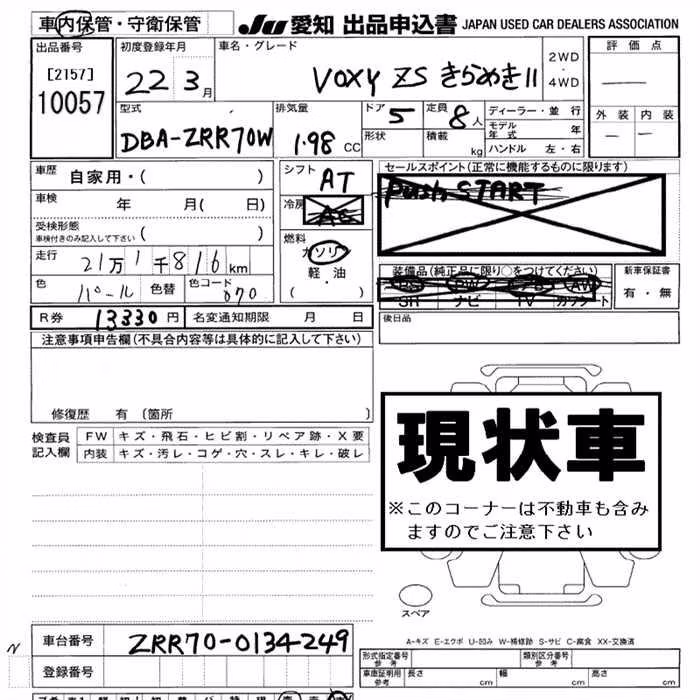 車内保管・守衛保管 JU 愛知 出品申込書 JAPAN USED CAR DEALERS ASSOCIATION
出品番号 初度登録年月 車名・グレード 2WD・4WD 評価点
[2157]
10057 22 3月 VOXY ZS きらめきII
外装 内装
型式 排気量 ドア 5 定員 8人 ディーラー・並行
モデル年式 年
DBA-ZRR70W 1.98 CC 形状 積載 kg ハンドル 左・右
車歴 自家用・( ) シフト AT セールスポイント(正常に機能するものに限ります)
Push START
車検 年 月( 日) 冷房 AC
受検形態 ( )
車検付きのみ記入して下さい
燃料 ガソリン
軽・油
( )
走行 21万1千816km
装備品(純正品に限り○をつけてください) 新車保証書
PS PW AW
SR ナビ TV カワシート 有・無
色 パール 色替 色コード 070
R券 13330円 名変通知期限 月 日 後日品
注意事項申告欄(不具合内容等は具体的に記入して下さい)
修復歴 有〔箇所 〕
検査員記入欄 FW キズ・飛石・ヒビ割・リペア跡・X要
内装 キズ・汚レ・コゲ・穴・スレ・キレ・破レ
現状車
※このコーナーは不動車も含みますのでご注意下さい
スペア
A-キズ E-エクボ U-凹み W-補修跡 S-サビ C-腐食 XX-交換済
N 車台番号 ZRR70-0134249
形式指定番号 参考 類別区分番号 参考
登録番号 車庫証明用 参考 長さ cm 幅 cm 高さ cm